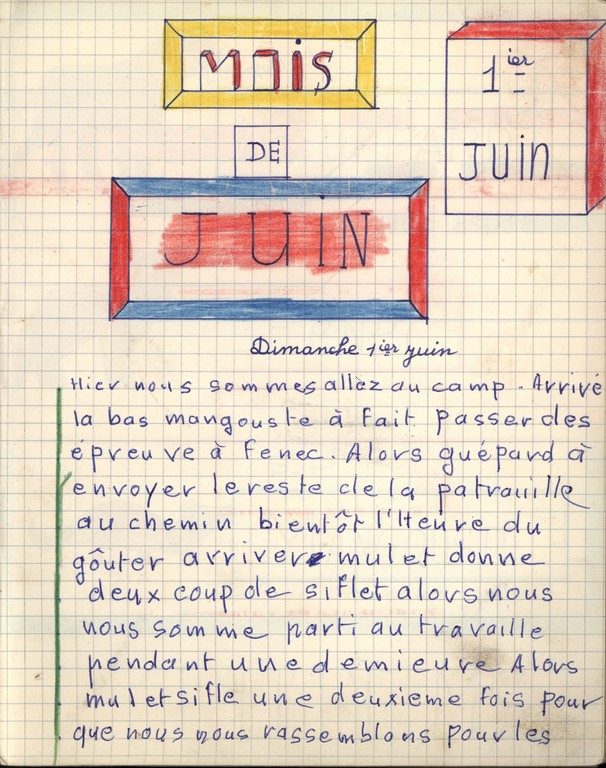 MOIS
DE
JUIN
1ier
JUin
Dimanche 1ier juin
Hier nous sommes allèz au camp. Arrivé
la bas mangouste à fait passer des
épreuve à fenec. Alors guépard à
envoyer le reste de la patrouille
au chemin bientôt l'Heure du
gôuter arriver mulet donne
deux coup de siflet alors nous
nous somme parti au travaille
pendant une demieure Alors
mulet sifle une deuxieme fois pour
que nous nous rassemblons pour les